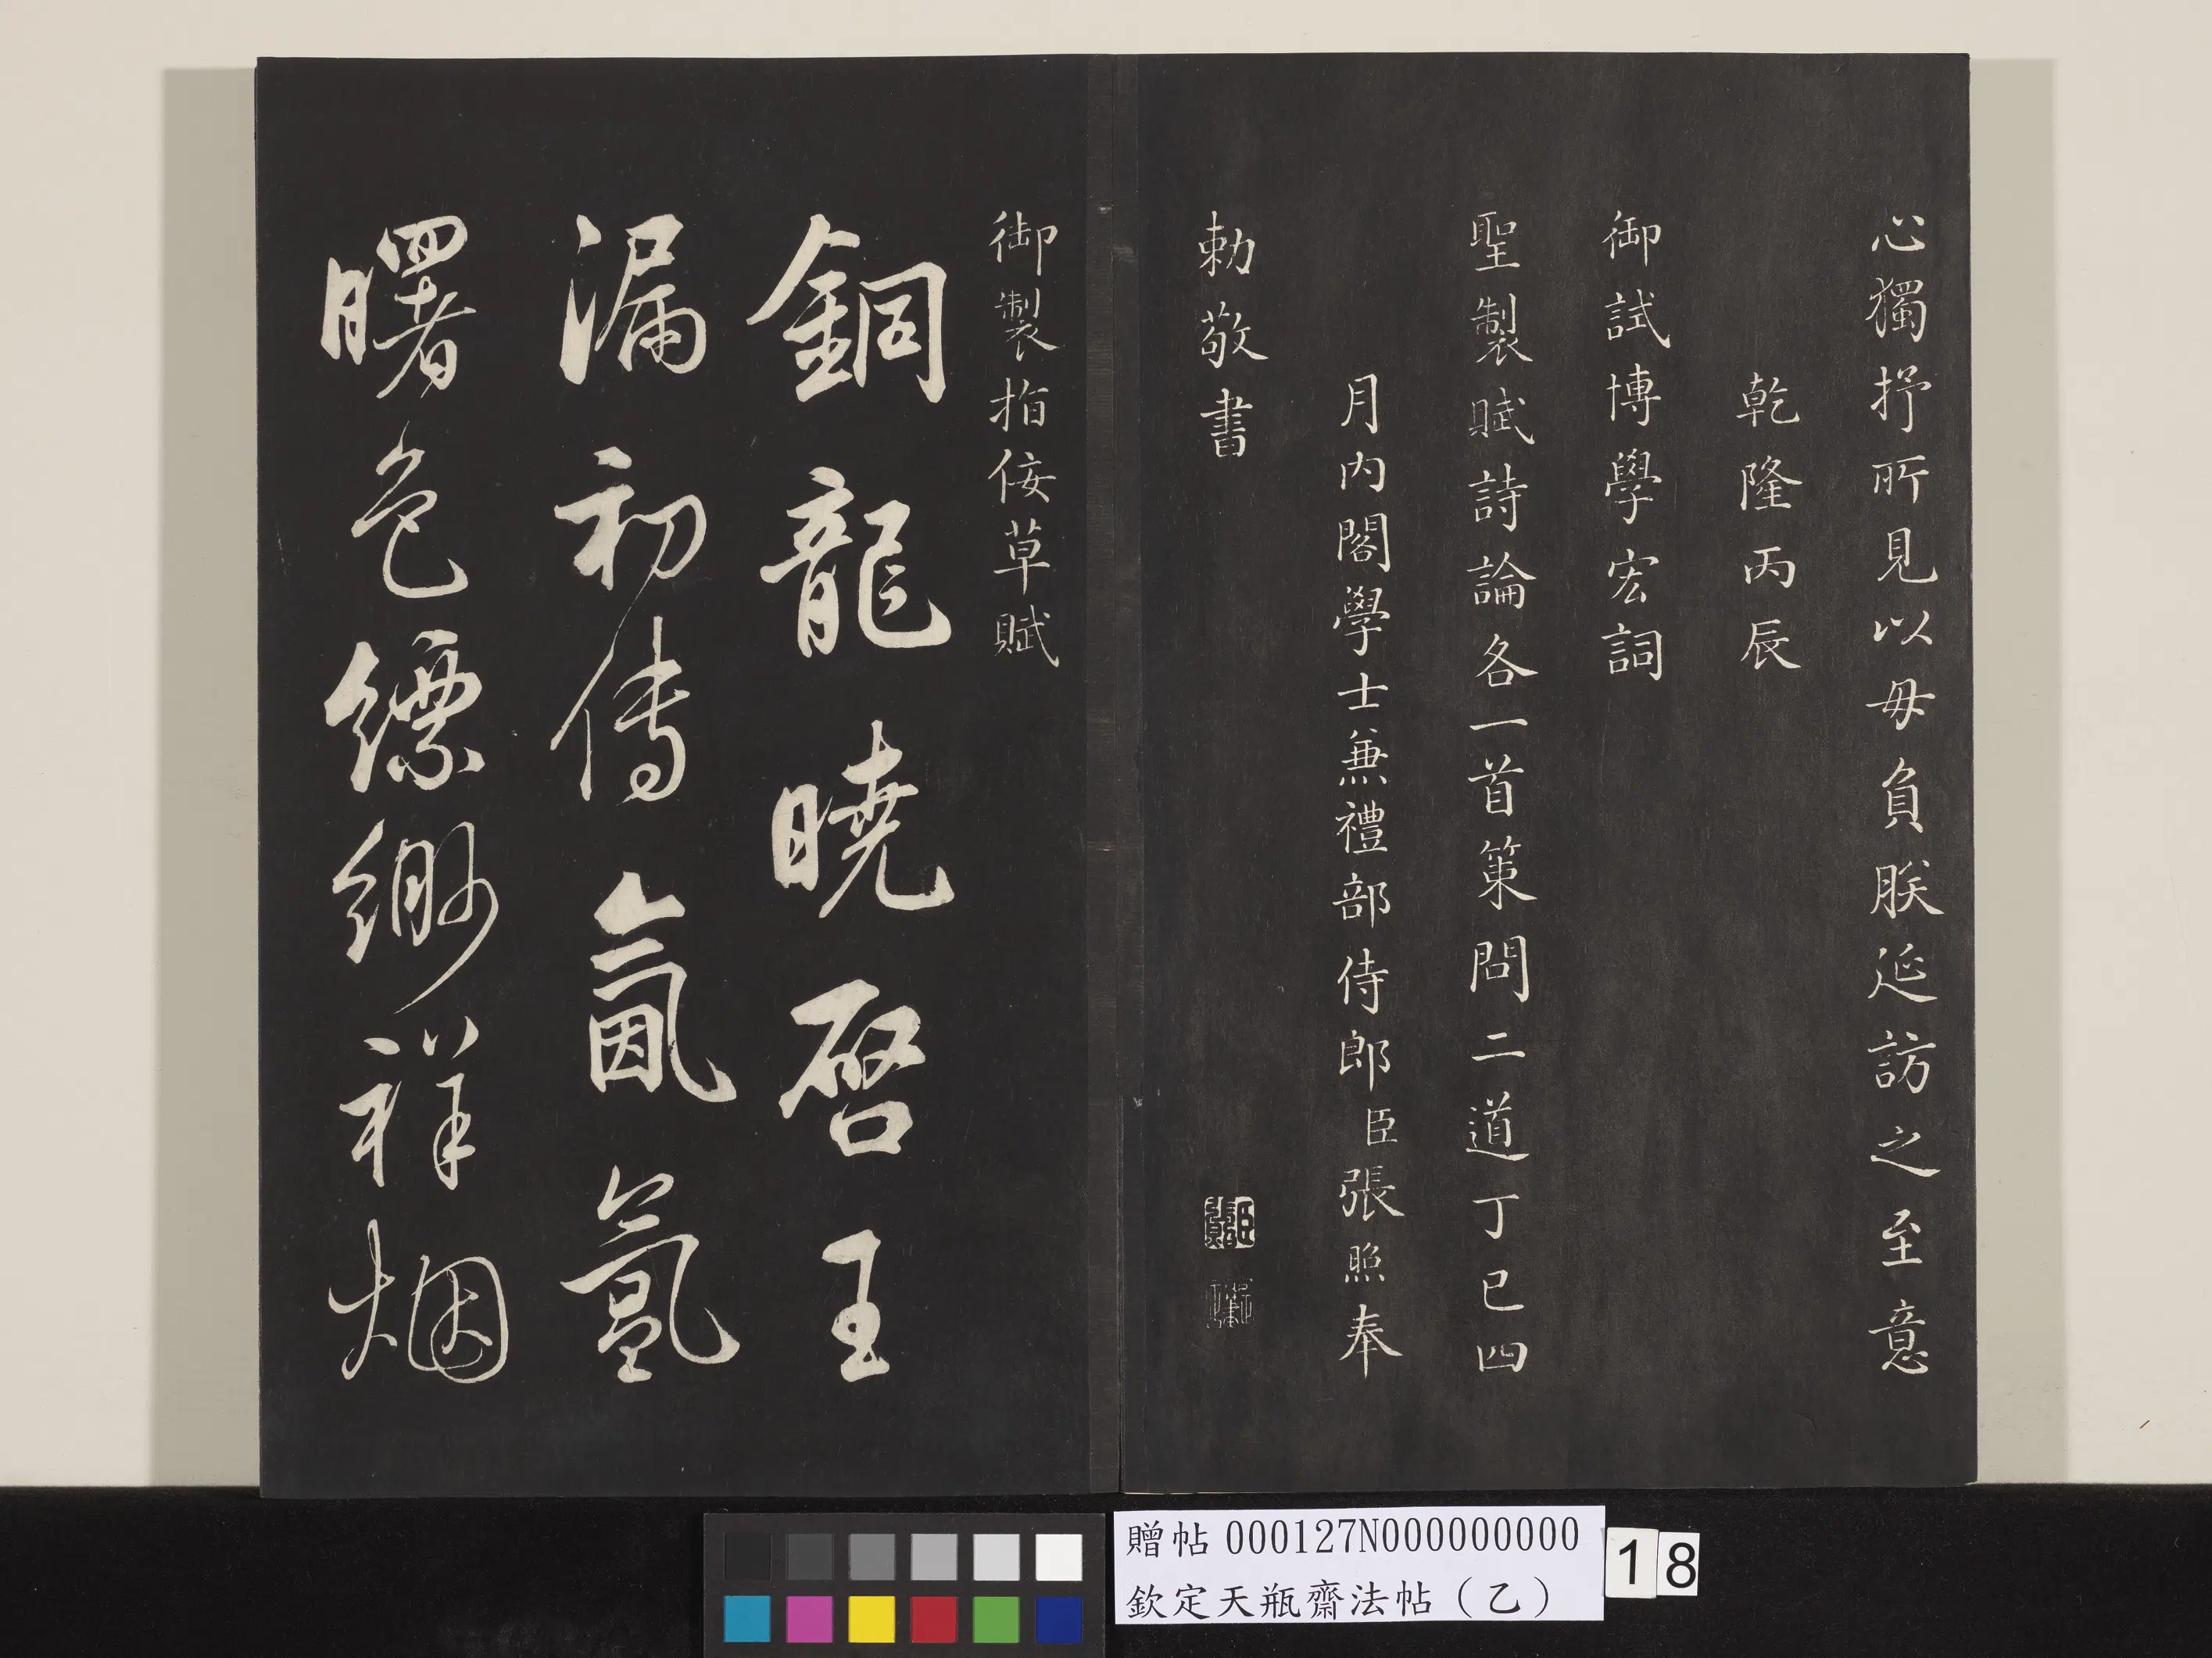 心獨抒所見以毋負朕延訪之至意
乾隆丙辰
御試博學宏詞
聖製賦詩論各一首策問二道丁巳四
月內閣學士兼禮部侍郎臣張照奉
勅敬書
御製指佞草賦
銅龍曉啓玉
漏初傳氤氳
曙色縹緲祥
烟
贈帖000127N000000000
欽定天瓶齋法帖（乙）
18